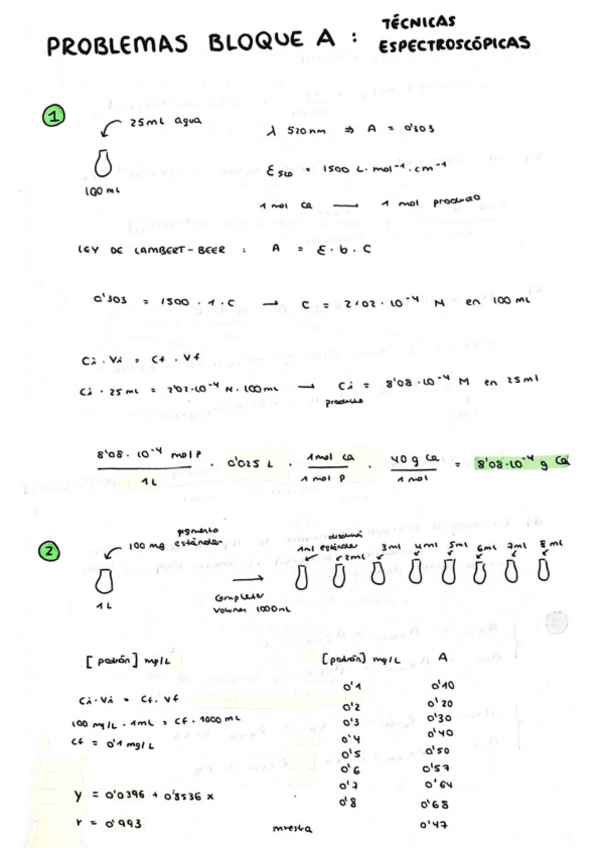 PROBLEMAS BLOQUE A : TÉCNICAS ESPECTROSCÓPICAS
1
25mL agua
100 mL
λ 520nm ⇒ A = 0'303
ε520 = 1500 L·mol⁻¹·cm⁻¹
1 mol Ca → 1 mol producto
LEY DE LAMBERT-BEER : A = ε·b·C
0'303 = 1500 · 1 · C → C = 2'02·10⁻⁴ M en 100 mL
Ci · Vi = Cf · Vf
Ci · 25 mL = 2'02·10⁻⁴ M · 100mL → Ci = 8'08·10⁻⁴ M en 25ml
producto
8'08·10⁻⁴ mol P / 1L · 0'025 L · 1mol Ca / 1 mol P · 40 g Ca / 1 mol = 8'08·10⁻⁴ g Ca
2
pigmento
100 mg estándar
1 L
Completar
volumen 1000mL
disolución
1ml estándar 2ml 3ml 4ml 5ml 6ml 7ml 8ml
[patrón] mg/L
Ci·Vi = Cf·Vf
100 mg/L · 1mL = Cf · 1000 mL
Cf = 0'1 mg/L
y = 0'0396 + 0'8536 x
r = 0'993
[patrón] mg/L A
0'1 0'10
0'2 0'20
0'3 0'30
0'4 0'40
0'5 0'50
0'6 0'57
0'7 0'64
0'8 0'68
muestra 0'47